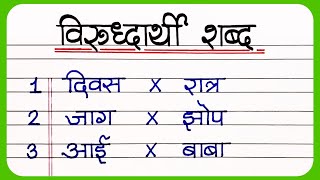 विरुध्दार्थी शब्द
1 दिवस x रात्र
2 जाग x झोप
3 आई x बाबा